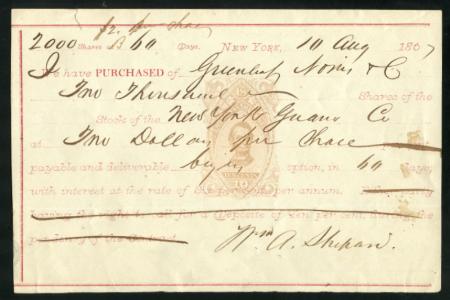 $2. per share
2000 Shares B 60 Days. NEW YORK, 10 Aug 1867
I have PURCHASED of Greenleaf Norris & C
Two Thousand Shares of the
Stock of the New York Guano Co
at Two Dollars per Share
payable and deliverable buyers option, in 60 days,
with interest at the rate of six per cent. per annum. Either party
having the right to call for a Deposite of ten per cent. during the
pendency of the Contract.
TEN CENTS
10
Wm A.